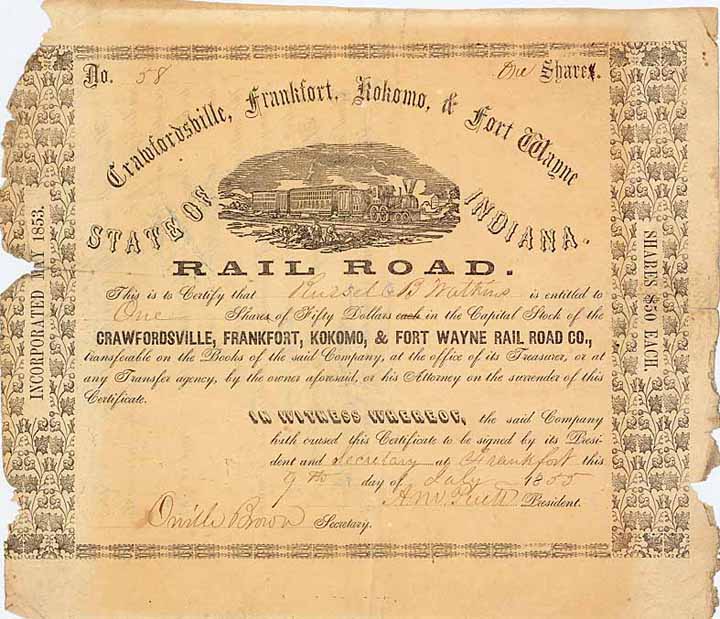 No. 58 One Share.
Crawfordsville, Frankfort, Kokomo, & Fort Wayne
STATE OF INDIANA.
RAIL ROAD.
INCORPORATED MAY 1853.
SHARES $50 EACH.
This is to Certify that Russel B Watkins is entitled to
One Shares of Fifty Dollars each in the Capital Stock of the
CRAWFORDSVILLE, FRANKFORT, KOKOMO, & FORT WAYNE RAIL ROAD CO.,
transferable on the Books of the said Company, at the office of its Treasurer, or at
any Transfer agency, by the owner aforesaid, or his Attorney on the surrender of this
Certificate.
IN WITNESS WHEREOF, the said Company
hath caused this Certificate to be signed by its Presi-
dent and Secretary at Frankfort this
9th day of July 1855
President.
Orville Brown Secretary.